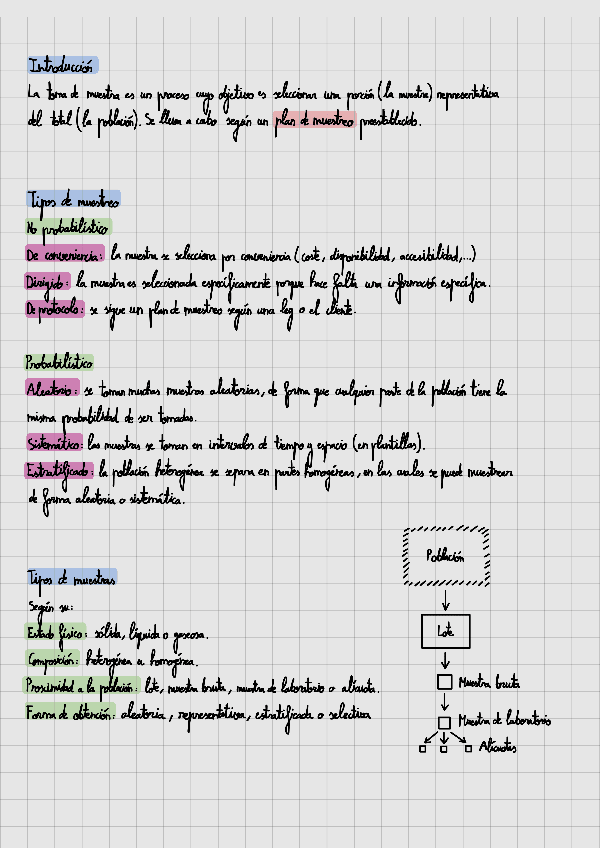 Introducción
La toma de muestra es un proceso cuyo objetivo es seleccionar una porción (la muestra) representativa
del total (la población). Se lleva a cabo según un plan de muestreo preestablecido.
Tipos de muestreo
No probabilístico
De conveniencia: la muestra se selecciona por conveniencia (coste, disponibilidad, accesibilidad,...)
Dirigido: la muestra es seleccionada específicamente porque hace falta una información específica.
De protocolo: se sigue un plan de muestreo según una ley o el cliente.
Probabilístico
Aleatorio: se toman muchas muestras aleatorias, de forma que cualquier parte de la población tiene la
misma probabilidad de ser tomadas.
Sistemático: las muestras se toman en intervalos de tiempo y espacio (en plantillas).
Estratificado: la población heterogénea se separa en partes homogéneas, en las cuales se puede muestrear
de forma aleatoria o sistemática.
Tipos de muestras
Según su:
Estado físico: sólida, líquida o gaseosa.
Composición: heterogénea u homogénea.
Proximidad a la población: lote, muestra bruta, muestra de laboratorio o alícuota.
Forma de obtención: aleatoria, representativa, estratificada o selectiva
Población
Lote
Muestra bruta
Muestra de laboratorio
Alícuotas